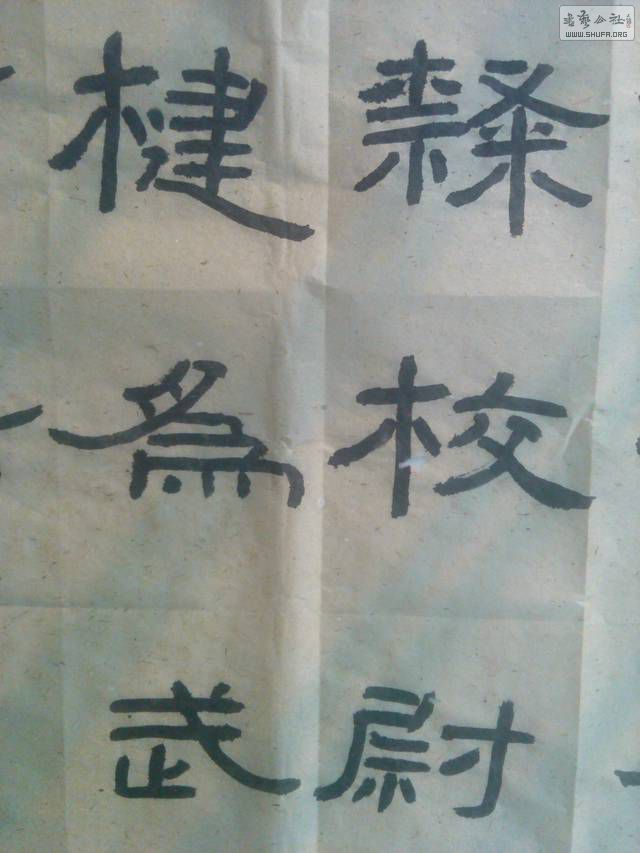 書藝公社
WWW.SHUFA.ORG
隸校尉
楗為武